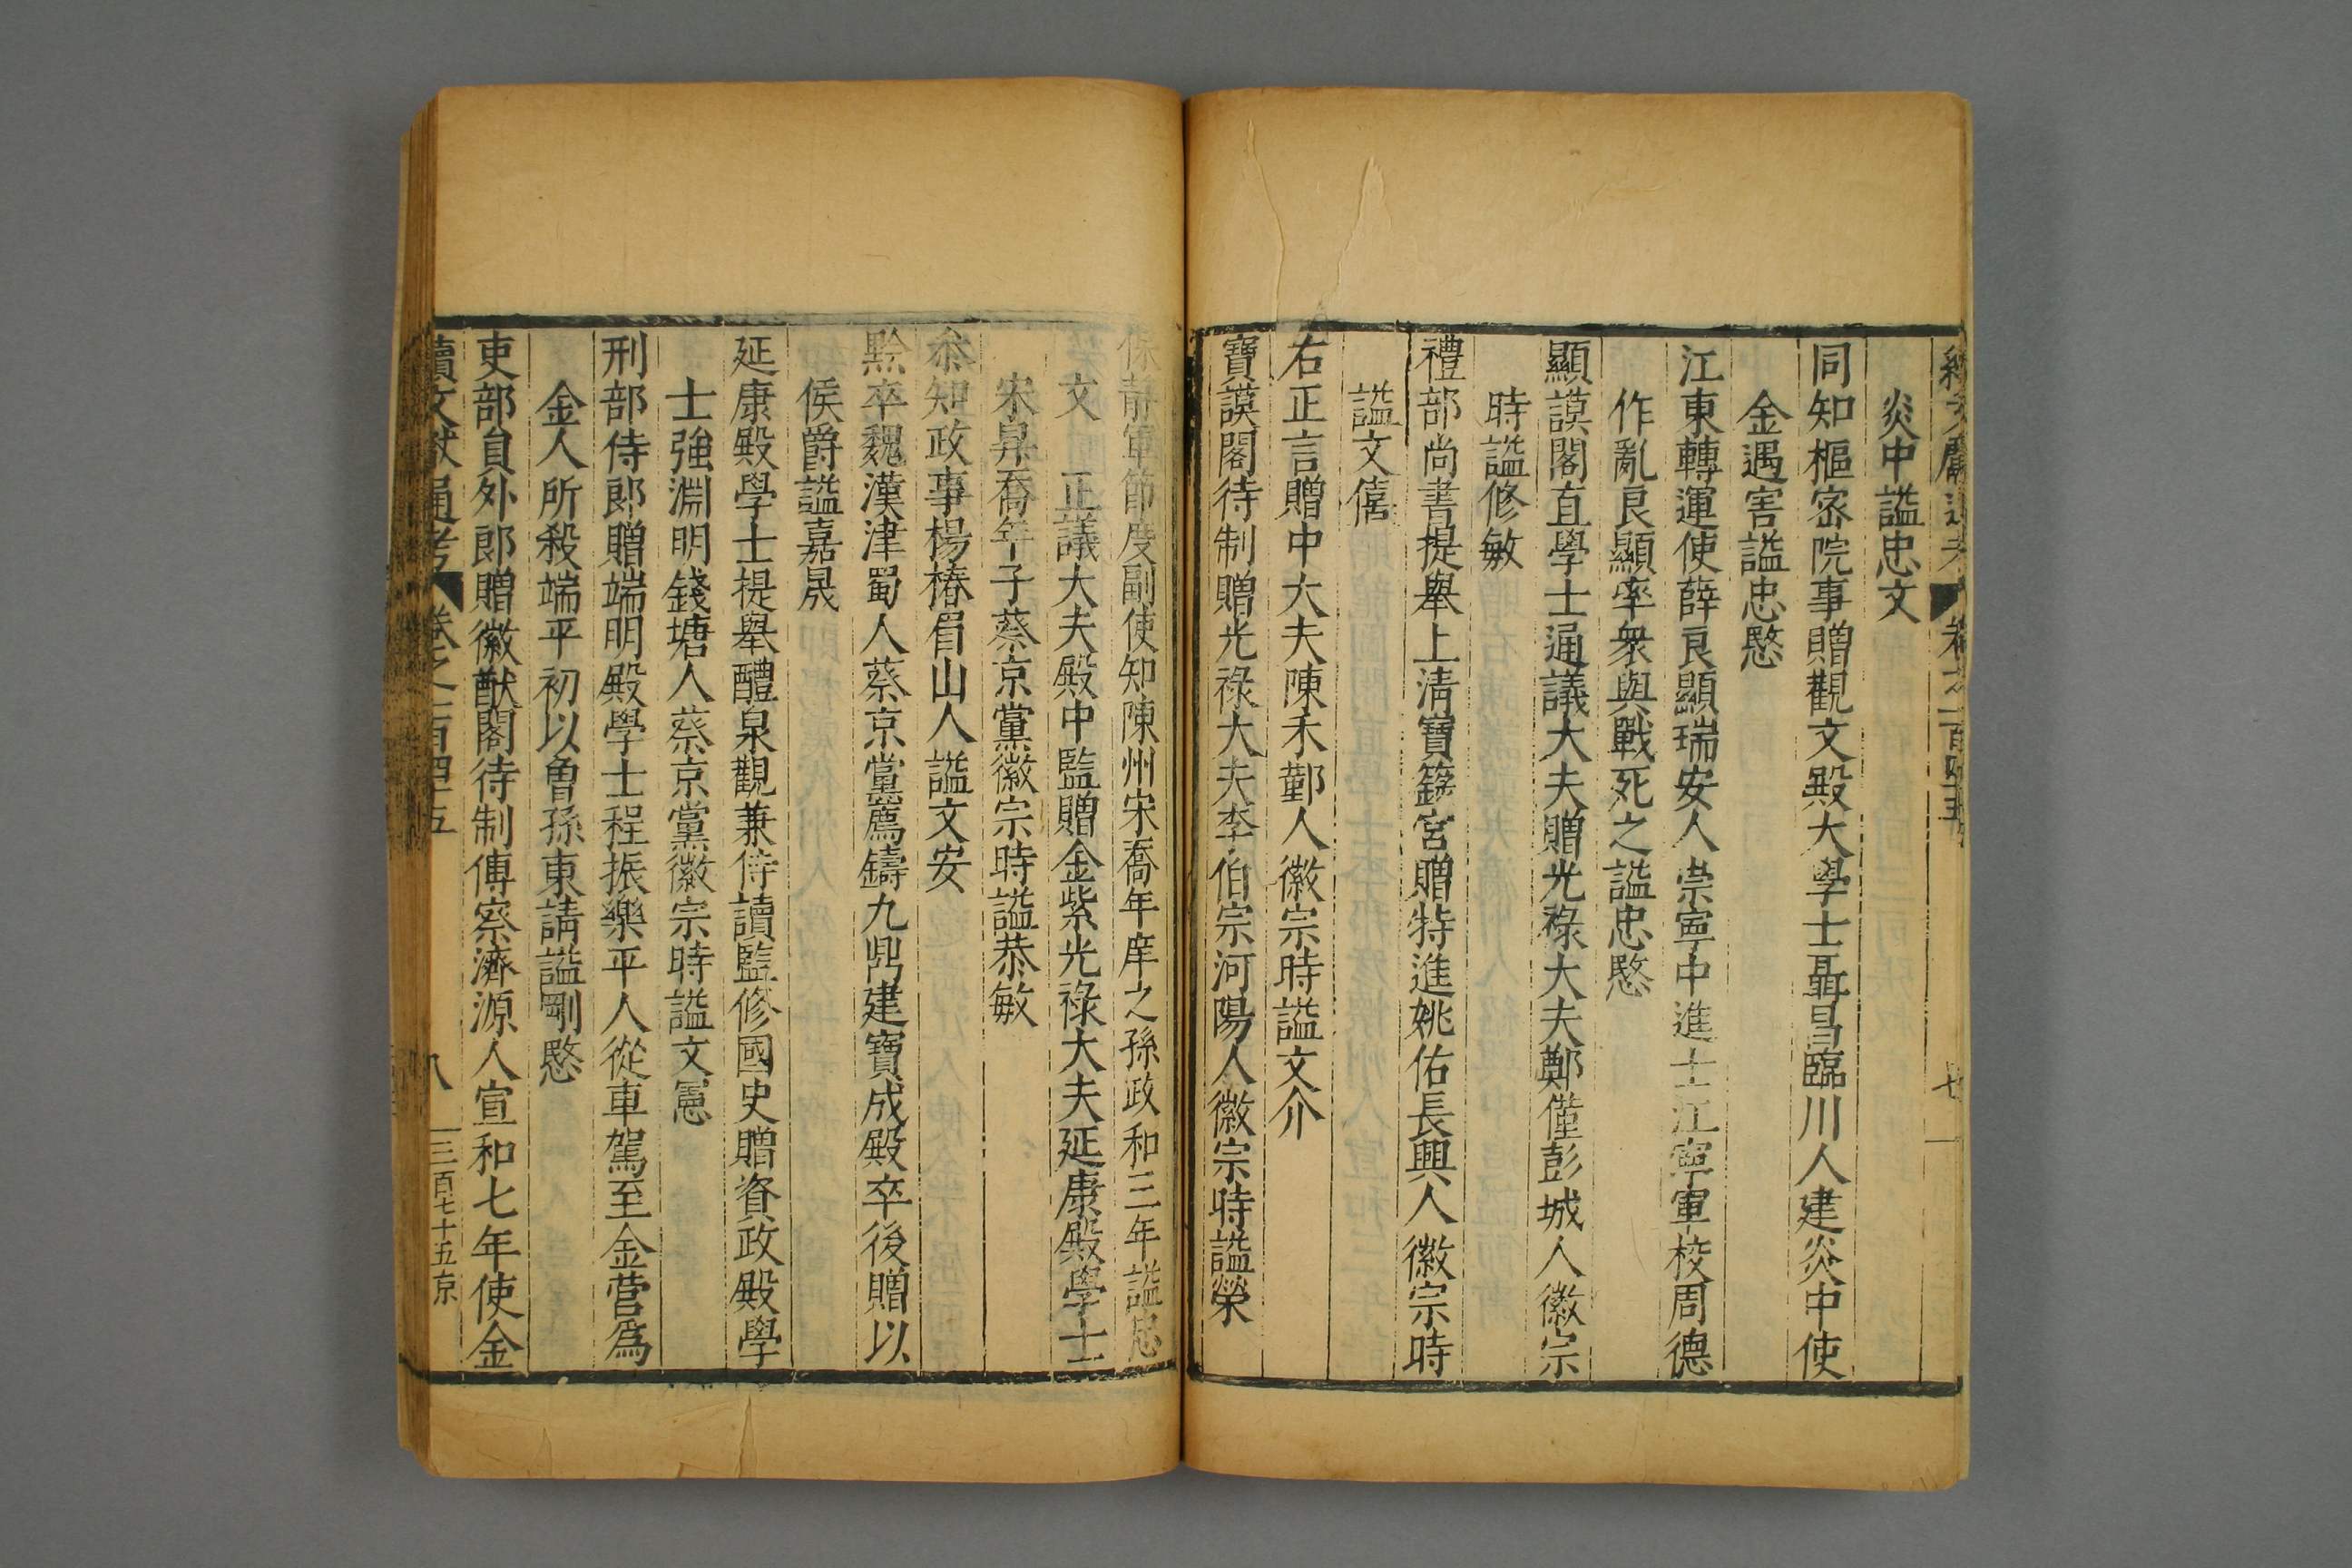 續文獻通考 卷之一百四十五 七
炎中謚忠文
同知樞密院事贈觀文殿大學士聶昌臨川人建炎中使
金遇害謚忠愍
江東轉運使薛良顯瑞安人崇寧中進士江寧軍校周德
作亂良顯率衆與戰死之謚忠愍
顯謨閣直學士通議大夫贈光祿大夫鄭僅彭城人徽宗
時謚修敏
禮部尚書提舉上淸寶籙宮贈特進姚佑長興人徽宗時
謚文僖
右正言贈中大夫陳禾鄞人徽宗時謚文介
寶謨閣待制贈光祿大夫李伯宗河陽人徽宗時謚榮
保靜軍節度副使知陳州宋喬年庠之孫政和三年謚忠
文 正議大夫殿中監贈金紫光祿大夫延康殿學士
宋昪喬年子蔡京黨徽宗時謚恭敏
叅知政事楊椿眉山人謚文安
黙卒魏漢津蜀人蔡京黨薦鑄九鼎建寶成殿卒後贈以
侯爵謚嘉晟
延康殿學士提舉醴泉觀兼侍讀監修國史贈資政殿學
士強淵明錢塘人蔡京黨徽宗時謚文憲
刑部侍郎贈端明殿學士程振樂平人從車駕至金營爲
金人所殺端平初以曾孫東請謚剛愍
吏部員外郎贈徽猷閣待制傅察濟源人宣和七年使金
續文獻通考 卷之一百四十五 八 三百七十五 京